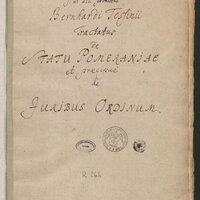 Bernhardi Tesfinii
Tractatus
de
STATU POMERANIAE
et praecipuè
de
JURIBUS ORDINUM.
R 266